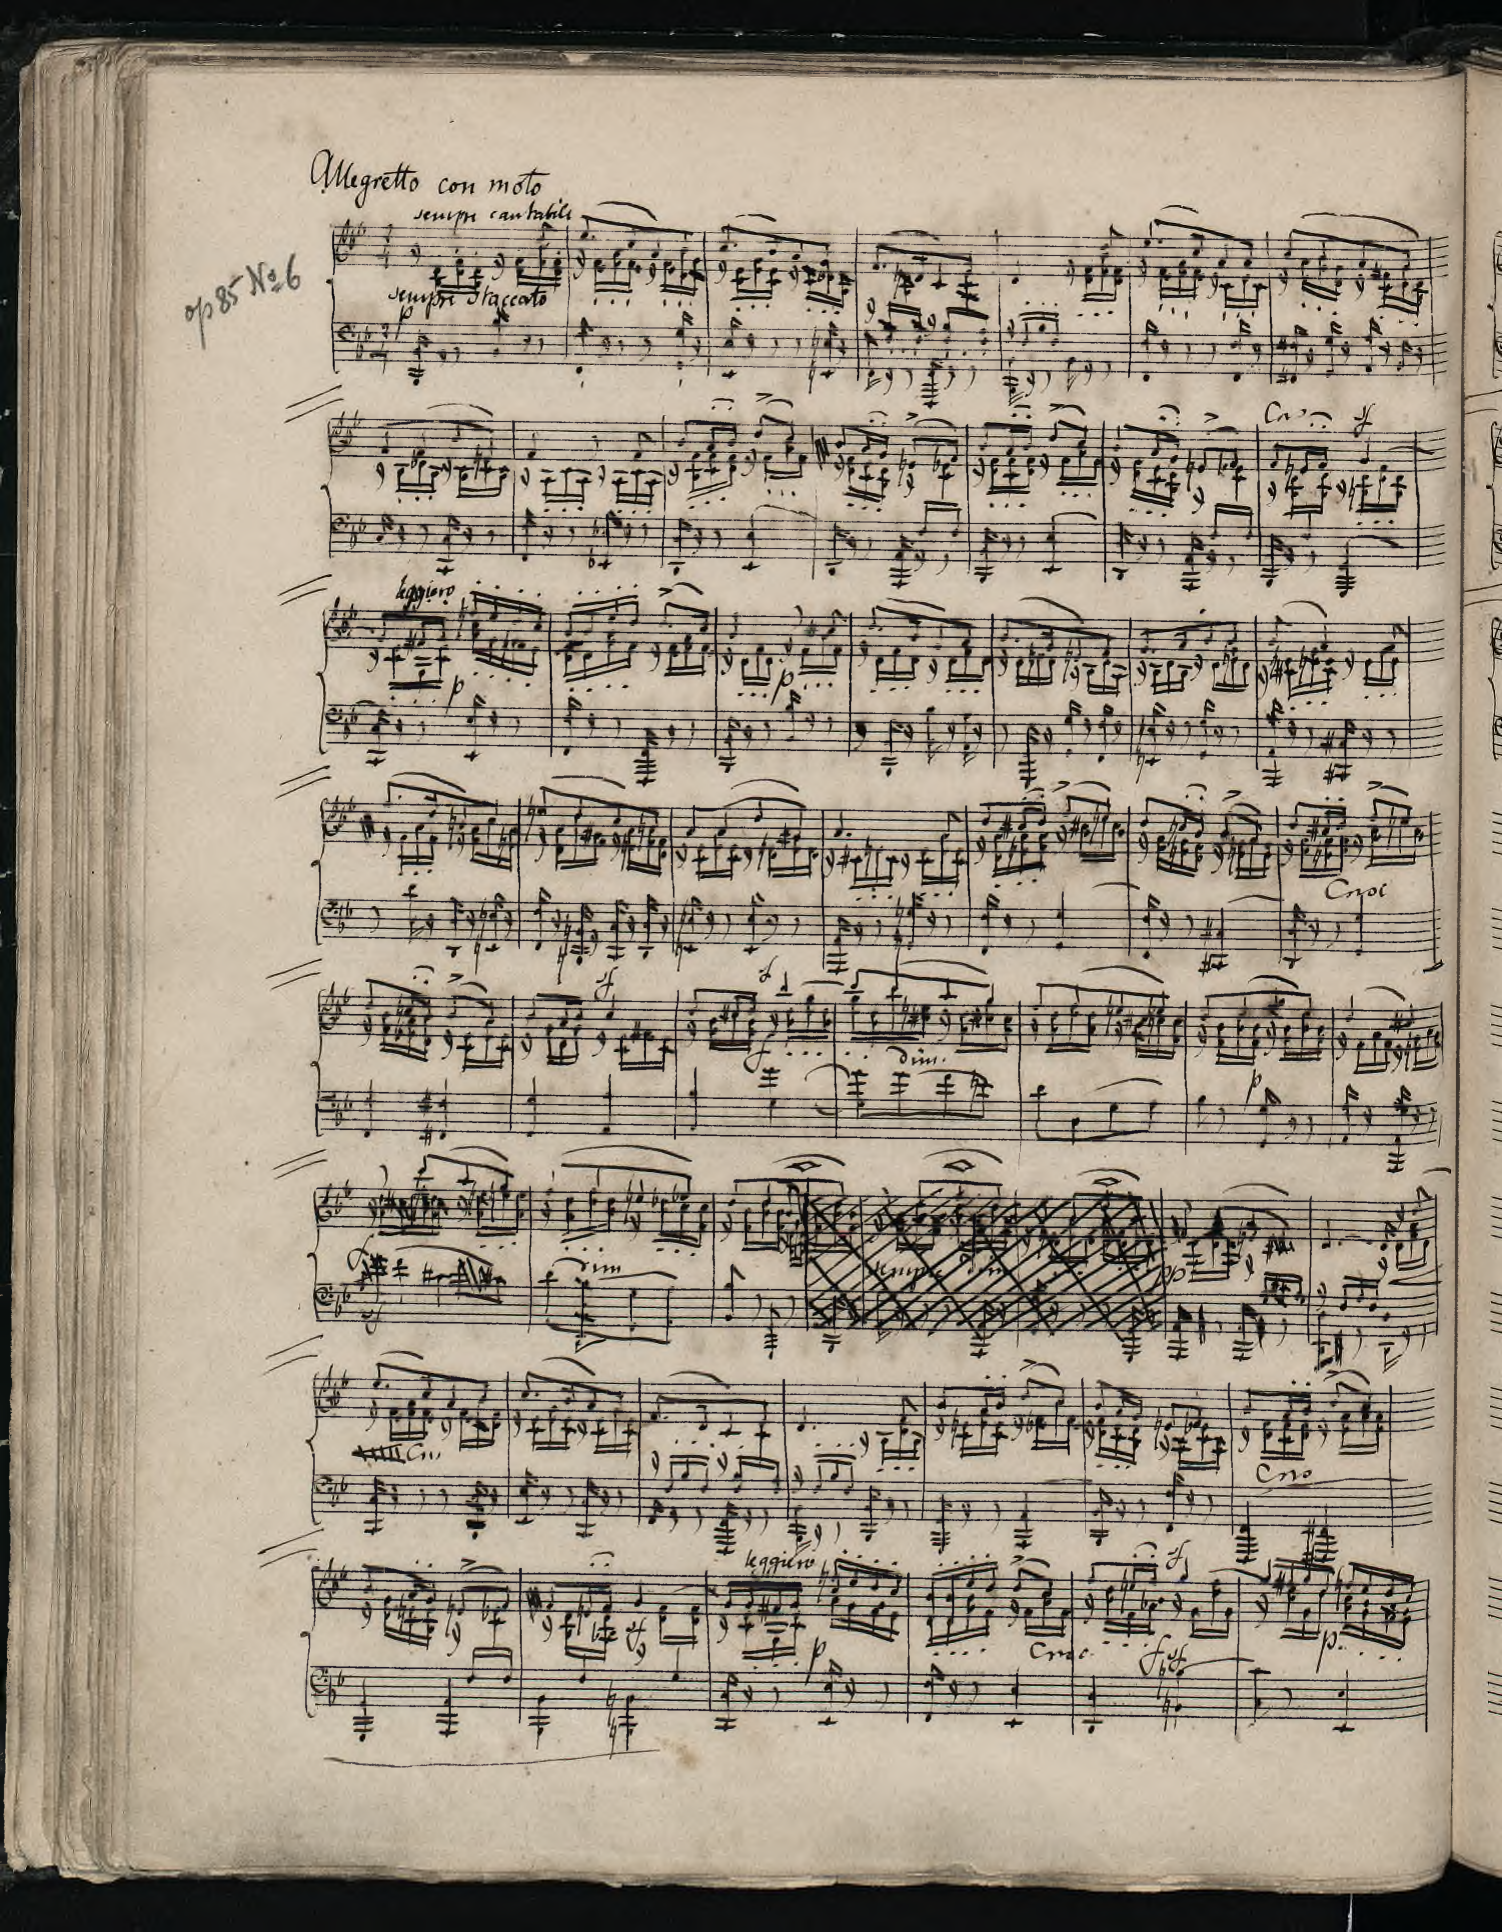 Allegretto con moto
sempre cantabile
op 85 No. 6
sempre staccato
p
Cres sf
leggiero
p p
Cresc
sf sf
f dim.
p
f dim
sf
pp
Cres
Cresc
leggiero sf
sf p Cresc. f sf p